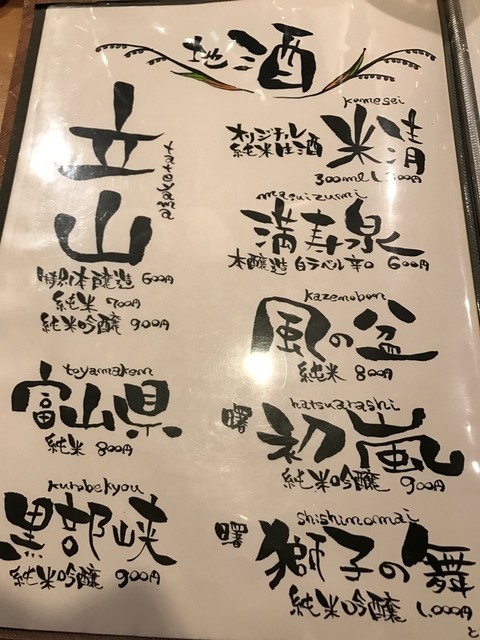 地酒
komesei
オリジナル
純米生酒
米清
300ml 1,200円
masuizumi
満寿泉
本醸造 白ラベル辛口 600円
kazenobon
風の盆
純米 800円
hatsuarashi
曙 初嵐
純米吟醸 900円
shishinomai
曙 獅子の舞
純米吟醸 1,000円
tateyama
立山
特別本醸造 600円
純米 700円
純米吟醸 900円
toyamaken
富山県
純米 800円
kurobekyou
黒部峡
純米吟醸 900円
と